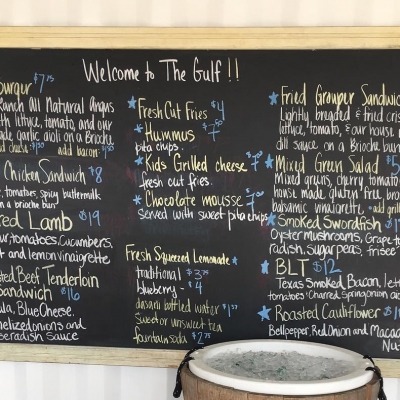 Welcome to The Gulf!!
burger $7.75
Ranch All Natural Angus
with lettuce, tomato, and our
made garlic aioli on a Brioche
add bacon
Chicken Sandwich $8
tomatoes, spicy buttermilk
on a brioche bun
red Lamb $19
tomatoes, Cucumbers,
and lemon vinaigrette
Beef Tenderloin
Sandwich $16
Blue Cheese.
onions and
radish sauce
Fresh Cut Fries $4
Hummus $7.50
pita chips.
Kids Grilled cheese $7
fresh cut fries.
Chocolate mousse $7
served with sweet pita chips
Fresh Squeezed Lemonade
traditional $3.75
blueberry - $4
dasani bottled water
sweet or unsweet tea
fountain soda
Fried Grouper Sandwich
Lightly breaded & fried cris
lettuce, tomato, & our house m
dill sauce on a Brioche bun
Mixed Green Salad $5
Mixed greens, cherry tomato
house made gluten free bro
balsamic vinaigrette add gril
Smoked Swordfish
Oyster Mushrooms, Grape to
radish, sugar peas, frisee
BLT $12
Texas Smoked Bacon, lett
tomatoes & Charred Spring onion aio
Roasted Cauliflower
Bell pepper, Red Onion and Macad
Nu